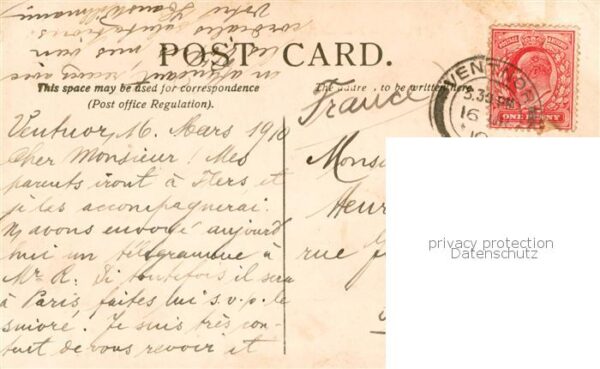 POST CARD.
This space may be used for correspondence
(Post office Regulation).
The addre to be written here.
Ventnor, 16. Mars 1910
Cher Monsieur! Mes
parents iront à Flers et
je les accompagnerai.
Ns avons envoyé aujourd
hui un télégramme à
Mr R. Si toutefois il sera
à Paris, faites lui s.v.p. le
suivre. Je suis très con-
tent de vous revoir et
en attendant recevez avec
mes
cordiales salutations.
Votre
France
Monsi
Henr
rue
VENTNOR
5.30 PM
16
10
ONE PENNY
privacy protection
Datenschutz